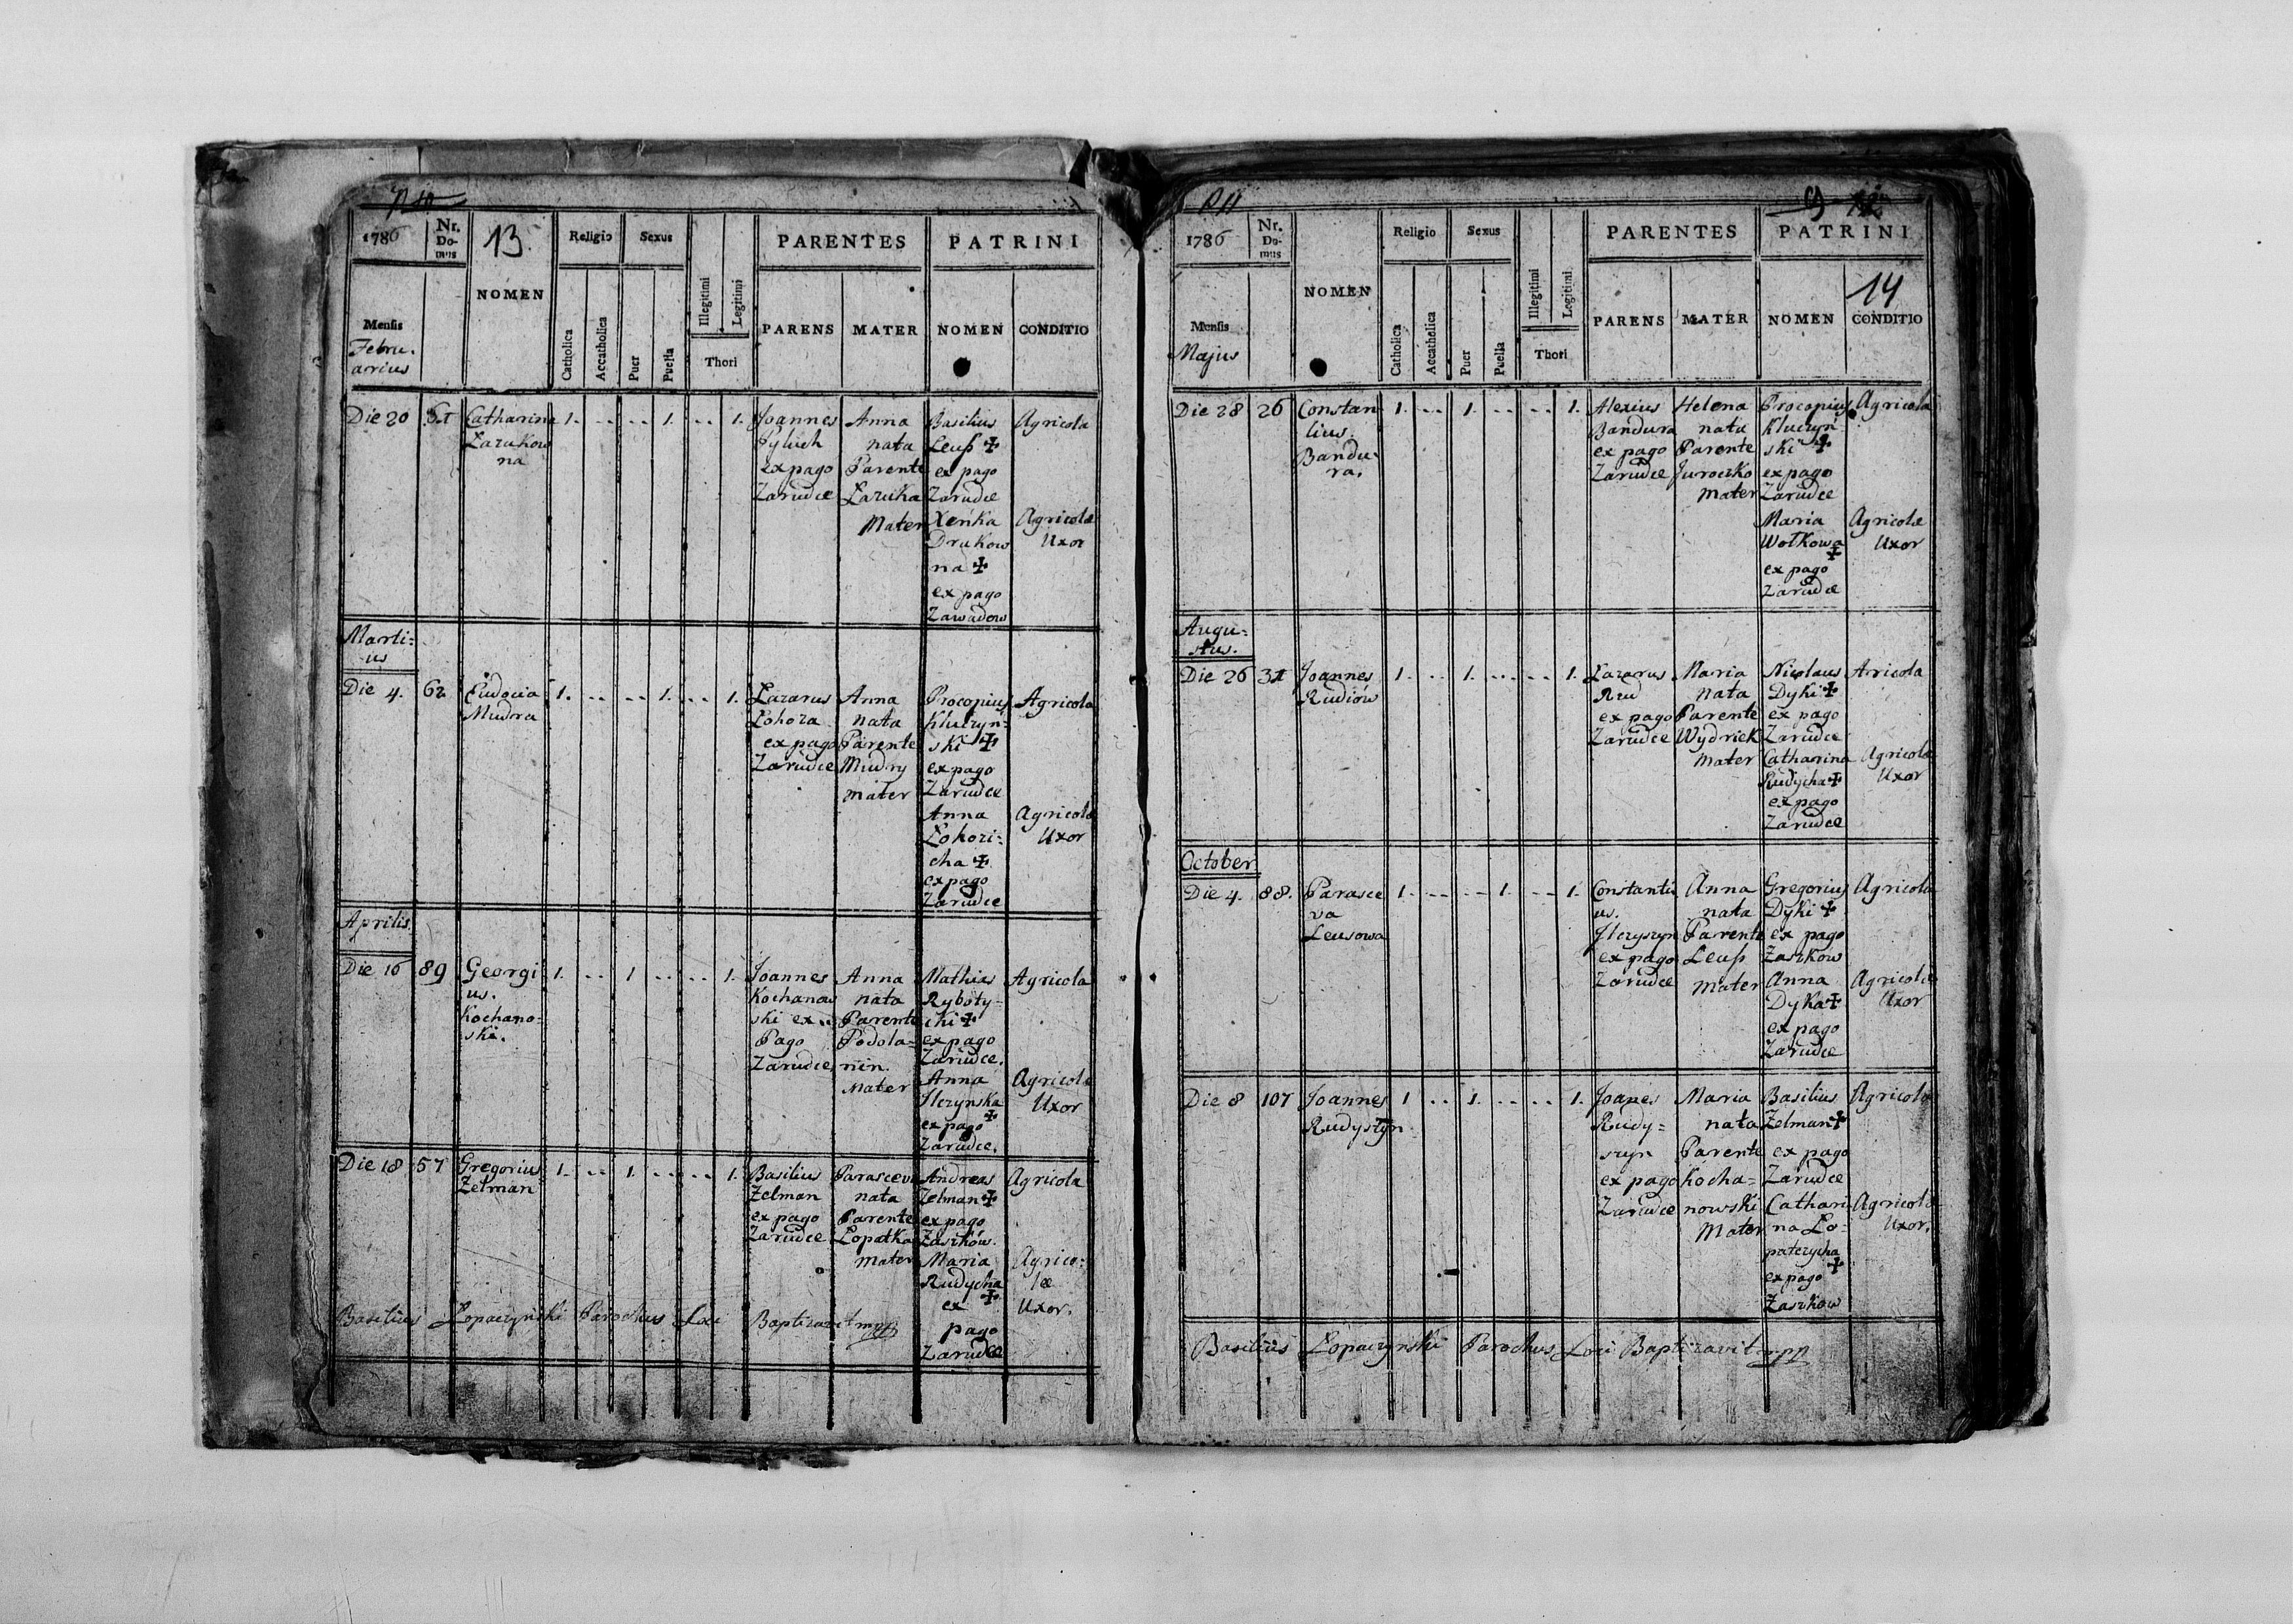 1786
Nr. Domus
13.
NOMEN
Religio
Sexus
PARENTES
PATRINI
Mensis
Febru.
arius
Catholica
Accatholica
Puer
Puella
Illegitimi
Legitimi
Thori
PARENS
MATER
NOMEN
CONDITIO
Die 20
Catharina
Lazukow
na
1. .. .. 1. .. 1.
Joannes
ex pago
Zarudce
Anna
nata
Parente
Mater
Basilius
Leuß ✠
ex pago
Zarudce
Xeńka
Drukow
na ✠
ex pago
Zawadow
Agricola
Agricolæ
Uxor
Marti=
us
Die 4.
62
Eudocia
Mudra
1. .. .. 1. .. 1.
Lazarus
Lohoza
ex pago
Zarudce
Anna
nata
Parente
Mudry
mater
Procopius
Kluczyn=
ski ✠
ex pago
Zarudce
Anna
Lohozi=
cha ✠
ex pago
Zarudce
Agricola
Agricolæ
Uxor
Aprilis
Die 16
89
Georgi
us.
Kochano=
ski.
1. .. 1 .. .. 1.
Joannes
Kochanow
ski ex
Pago
Zarudce
Anna
nata
Parente
Podola=
nin.
Mater
Mathias
Ryboty=
cki ✠
ex pago
Zarudce.
Anna
Ilczynska
✠
ex pago
Zarudce.
Agricola
Agricolæ
Uxor
Die 18
57
Gregorius
Zelman
1. .. 1. .. .. 1.
Basilius
Zelman
ex pago
Zarudce
Parasceva
nata
Parente
Lopatka
mater
Andreas
Zelman ✠
ex pago
Zaszków.
Maria
Rudycha
✠
ex
pago
Zarudce
Agricola
Agrico=
læ
Uxor.
Basilius Lopaczynski Parochus Loci Baptizavit mpp
1786
Nr. Domus
NOMEN
Religio
Sexus
PARENTES
PATRINI
14
Mensis
Majus
Catholica
Accatholica
Puer
Puella
Illegitimi
Legitimi
Thori
PARENS
MATER
NOMEN
CONDITIO
Die 28
26
Constan
tius
Bandu=
ra.
1. .. 1. .. .. 1.
Alexius
Bandura
ex pago
Zarudce
Helena
nata
Parente
Juroczko
mater
Procopius
Kluczyń
ski ✠
ex pago
Zarudce
Maria
Wołkowa
✠
ex pago
Zarudce
Agricola
Agricolæ
Uxor
Augu=
stus.
Die 26
Joannes
Rudiów
1. .. 1. .. .. 1.
Lazarus
Rud
ex pago
Zarudce
Maria
nata
Parente
Wydrick
mater
Nicolaus
Dyki ✠
ex pago
Zarudce
Catharina
Rudycha ✠
ex pago
Zarudce
Aricola
Agricolæ
Uxor
October
Die 4.
88.
Parasce
va
Leusowa
1. .. .. 1. .. 1.
Constanti
us.
Ilczyszyn
ex pago
Zarudce
Anna
nata
Parente
Leuß
mater
Gregorius
Dyki ✠
ex pago
Zaszkow
Anna
Dyka ✠
ex pago
Zarudce
Agricola
Agricolæ
Uxor
Die 8
107
Joannes
Rudyszyn
1 .. 1. .. .. 1.
Joanes
Rudy=
szyn
ex pago
Zarudce
Maria
nata
Parente
Kocha=
nowski
Mater
Basilius
Zelman ✠
ex pago
Zarudce
Cathari
na Lo=
patczycha
✠
ex pago
Zaszkow
Agricola
Agricolæ
Uxor.
Basilius Lopaczynski Parochus Loci Baptizavit mpp